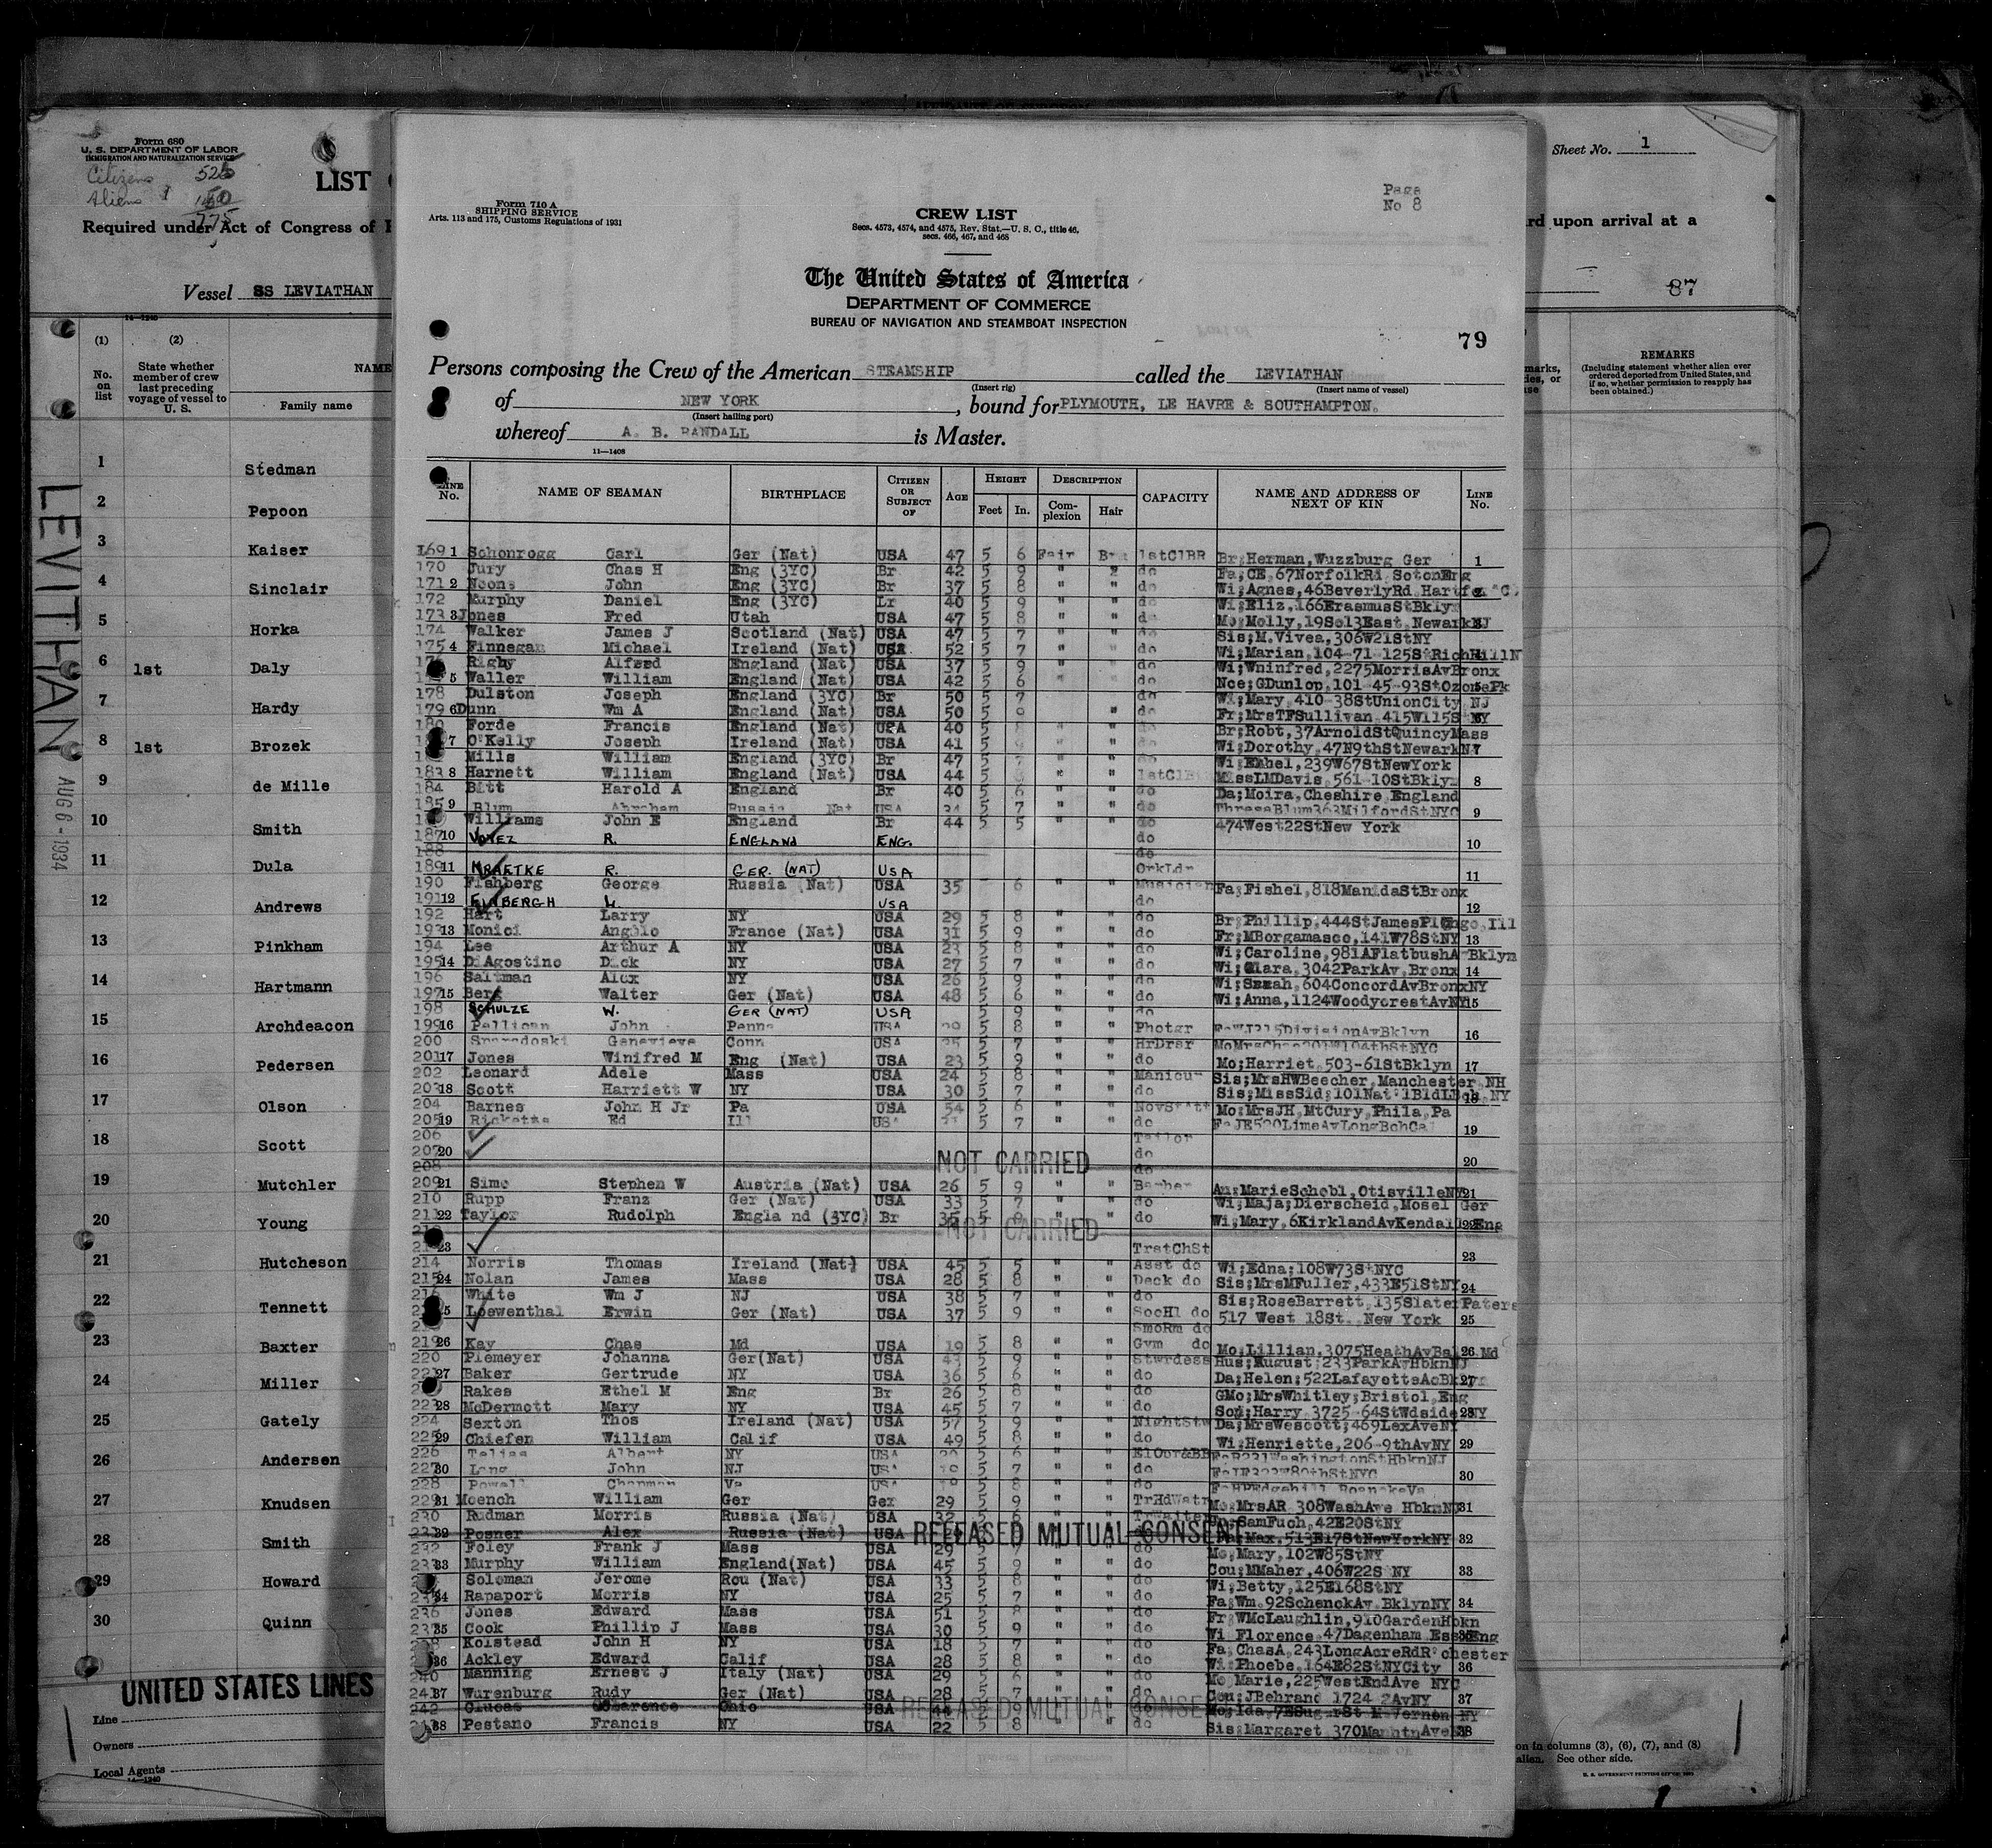 Form 680
U. S. DEPARTMENT OF LABOR
IMMIGRATION AND NATURALIZATION SERVICE
Citizens 525
Aliens
775
LIST
Required under Act of Congress of
Vessel SS LEVIATHAN
(1) (2)
No. on list
State whether member of crew last preceding voyage of vessel to U. S.
NAME
Family name
1 Stedman
2 Pepoon
3 Kaiser
4 Sinclair
5 Horka
6 1st Daly
7 Hardy
8 1st Brozek
9 de Mille
10 Smith
11 Dula
12 Andrews
13 Pinkham
14 Hartmann
15 Archdeacon
16 Pedersen
17 Olson
18 Scott
19 Mutchler
20 Young
21 Hutcheson
22 Tennett
23 Baxter
24 Miller
25 Gately
26 Andersen
27 Knudsen
28 Smith
29 Howard
30 Quinn
LEVITHAN
AUG 6-1934
UNITED STATES LINES
Line
Owners
Local Agents
14-1240
Form 710 A
SHIPPING SERVICE
Arts. 113 and 175, Customs Regulations of 1931
Page
No 8
CREW LIST
Secs. 4573, 4574, and 4575, Rev. Stat.—U. S. C., title 46,
secs. 466, 467, and 468
The United States of America
DEPARTMENT OF COMMERCE
BUREAU OF NAVIGATION AND STEAMBOAT INSPECTION
79
Persons composing the Crew of the American STEAMSHIP called the LEVIATHAN
(Insert rig) (Insert name of vessel)
of NEW YORK, bound for PLYMOUTH, LE HAVRE & SOUTHAMPTON.
(Insert hailing port)
whereof A. B. RANDALL is Master.
11—1408
LINE No. NAME OF SEAMAN BIRTHPLACE CITIZEN OR SUBJECT OF AGE HEIGHT Feet In. DESCRIPTION Complexion Hair CAPACITY NAME AND ADDRESS OF NEXT OF KIN LINE No.
169 1 Schonrogg Carl Ger (Nat) USA 47 5 6 Fair 1stClBR Br;Herman,Wuzzburg Ger 1
170 Jury Chas H Eng (3YC) Br 42 5 9 " do Fa;CE,67NorfolkRd SotonEng
171 2 Noons John Eng (3YC) Br 37 5 8 " " do Wi;Agnes,46BeverlyRd
172 Murphy Daniel Eng (3YC) 40 5 9 " " do Wi;Eliz,166ErasmusStBklyn
173 3 Jones Fred Utah USA 47 5 8 " " Mo;Molly,19So13East NewarkNJ
174 Walker James J Scotland (Nat) USA 47 5 7 " Sis;M.Vivea,306W21StNY
175 4 Finnegan Michael Ireland (Nat) USA 52 5 7 " do Wi;Marian,104-71-125StRichHillN
Rigby Alfred England (Nat) USA 37 5 9 " " do Wi;Wninfred,2275MorrisAvBronx
5 Waller William England (Nat) USA 42 5 6 " " do Nce;GDunlop,101-45-93StOzonePk
178 Dulston Joseph England (3YC) Br 50 5 7 do Wi;Mary 410-38StUnionCity NJ
179 6 Dunn Wm A England (Nat) USA 50 5 9 " do Fr;MrsTFSullivan 415W115StNY
180 Forde Francis England (Nat) USA 40 5 8 do Br;Robt,37ArnoldStQuincyMass
7 O'Kelly Joseph Ireland (Nat) USA 41 5 do Wi;Dorothy,47N9thStNewarkNJ
Mills William England (3YC) Br 47 5 7 do Wi;Ethel,239W67StNewYork
183 8 Harnett William England (Nat) USA 44 5 " " MissLMDavis,561-10StBklyn 8
184 Bitt Harold A England Br 40 5 6 " " do Da;Moira,Cheshire England
185 9 Blum Abraham Russia Nat USA 34 5 7 " " do ThresaBlum363MilfordStNYC 9
Williams John E England Br 44 5 5 " " do 474West22StNew York
187 10 R. ENGLAND ENG. do 10
188 do
189 11 KRAETKE R. GER. (NAT) USA OrkLdr 11
190 Fishberg George Russia (Nat) USA 35 6 " " Musician Fa;Fishel,818ManidaStBronx
191 12 L. USA do 12
192 Hart Larry NY USA 29 5 8 " " do Br;Phillip,444StJamesPl
193 13 Monici Angelo France (Nat) USA 31 5 9 " " do Fr;MBorgamasco,141W78StNY 13
194 Lee Arthur A NY USA 23 5 8 " " do Wi;Caroline,981AFlatbushA Bklyn
195 14 D'Agostino Dick NY USA 27 5 7 " " do Wi;Clara,3042ParkAv,Bronx 14
196 Saltman Alex NY USA 26 5 9 " " do Wi;Sarah,604ConcordAvBronxNY
197 15 Berg Walter Ger (Nat) USA 48 5 6 " " do Wi;Anna,1124WoodycrestAvNY 15
198 SCHULZE W. GER (NAT) USA 5 9 " " do
199 16 Pellican John Penna USA 5 8 " " Photgr 315DivisionAvBklyn 16
200 Genevieve Conn USA 35 5 7 " " HrDrsr
201 17 Jones Winifred M Eng (Nat) USA 23 5 9 " " do Mo;Harriet,503-61StBklyn 17
202 Leonard Adele Mass USA 24 5 8 " " Manicur Sis;MrsHWBeecher,Manchester NH
203 18 Scott Harriett W NY USA 30 5 7 " " do Sis;MissSid;101Nat'lBldLBch,NY 18
204 Barnes John H Jr Pa USA 54 5 6 " " Mo;MrsJH,MtCury,Phila,Pa
205 19 Ricketts Ed Ill USA 5 7 " " do FaJE520LimeAvLongBchCal 19
206 Tailor
207 20 NOT CARRIED do 20
208 do
209 21 Simo Stephen W Austria (Nat) USA 26 5 9 " " Barber Au;MarieSchobl,OtisvilleNY 21
210 Rupp Franz Ger (Nat) USA 33 5 7 " " do Wi;Maja;Dierscheid,Mosel Ger
211 22 Taylor Rudolph Engla nd (3YC) Br 5 " " do Wi;Mary,6KirklandAvKendal Eng
NOT CARRIED
23 TrstChSt 23
214 Norris Thomas Ireland (Nat) USA 45 5 5 " " Asst do Wi;Edna;108W73StNYC
215 24 Nolan James Mass USA 28 5 8 " " Deck do Sis;MrsMFuller,433E51StNY 24
216 White Wm J NJ USA 38 5 7 " " do Sis;RoseBarrett,135Slater Paters
Loewenthal Erwin Ger (Nat) USA 37 5 9 " " SocHl do 517 West 18St. New York 25
SmoRm do
219 26 Kay Chas Md USA 19 5 8 " " Gym do Mo;Lillian,3075HeathAvBal Md 26
220 Plemeyer Johanna Ger(Nat) USA 43 5 9 " " Stwrdess Hus;August;233ParkAvHbknNJ
27 Baker Gertrude NY USA 36 5 6 " " do Da;Helen;522LafayetteAvBklyn 27
Rakes Ethel M Eng Br 26 5 8 " " do GMo;MrsWhitley;Bristol,Eng
223 28 McDermott Mary NY USA 45 5 7 " " do Son;Harry 3725-64StWdside NY 28
224 Sexton Thos Ireland (Nat) USA 57 5 9 " " NightStw Da;MrsWescott;469LexAveNY
225 29 Chiefen William Calif USA 49 5 8 " " do Wi;Henriette,206-9thAvNY 29
226 Albert NY USA 5 6 " " WashingtonStHbknNJ
227 30 Lang John NJ USA 5 7 " " do 80thStNYC 30
228 Powell Chapman Va USA 5 8 " " do RoanokeVa
229 31 Moench William Ger Ger 29 5 9 " " TrHdWatr Mo;MrsAR 308WashAve HbknNJ 31
230 Rudman Morris Russia (Nat) USA 32 5 6 " " SamFuch,42E20StNY
32 Posner Alex Russia (Nat) USA RELEASED MUTUAL CONSENT Max,513E17StNewYorkNY 32
232 Foley Frank J Mass USA 29 " " do Mo;Mary,102W85StNY
33 Murphy William England(Nat) USA 45 5 9 " " do Cou;MMaher,406W22S NY 33
Soloman Jerome Rou (Nat) USA 33 5 8 " " do Wi;Betty,125E168StNY
34 Rapaport Morris NY USA 25 5 7 " " do Fa;Wm,92SchenckAv BklynNY 34
236 Jones Edward Mass USA 51 5 8 " " do Fr;WMcLaughlin,910GardenHbkn
237 35 Cook Phillip J Mass USA 30 5 9 " " do Wi Florence 47Dagenham Eng
Kolstead John H NY USA 18 5 7 " " do Fa ChasA,243LongAcreRdR chester
36 Ackley Edward Calif USA 28 5 8 " " do Wi Phoebe,164E82StNYCity 36
Manning Ernest J Italy (Nat) USA 29 5 6 " " do Mo Marie,225WestEndAve NYC
241 37 Wurenburg Rudy Ger (Nat) USA 28 5 7 " " do Cou;JBehrand 1724 2AvNY 37
242 Glucas Clarence Ohio USA 44 5 9 RELEASED MUTUAL CONSENT do Mo;Ida, NY
38 Pestano Francis NY USA 22 5 8 " " do Sis;Margaret 370ManhtnAveNY 38
Sheet No. 1
rd upon arrival at a
87
REMARKS
(Including statement whether alien ever ordered deported from United States, and if so, whether permission to reapply has been obtained.)
on in columns (3), (6), (7), and (8)
alien. See other side.